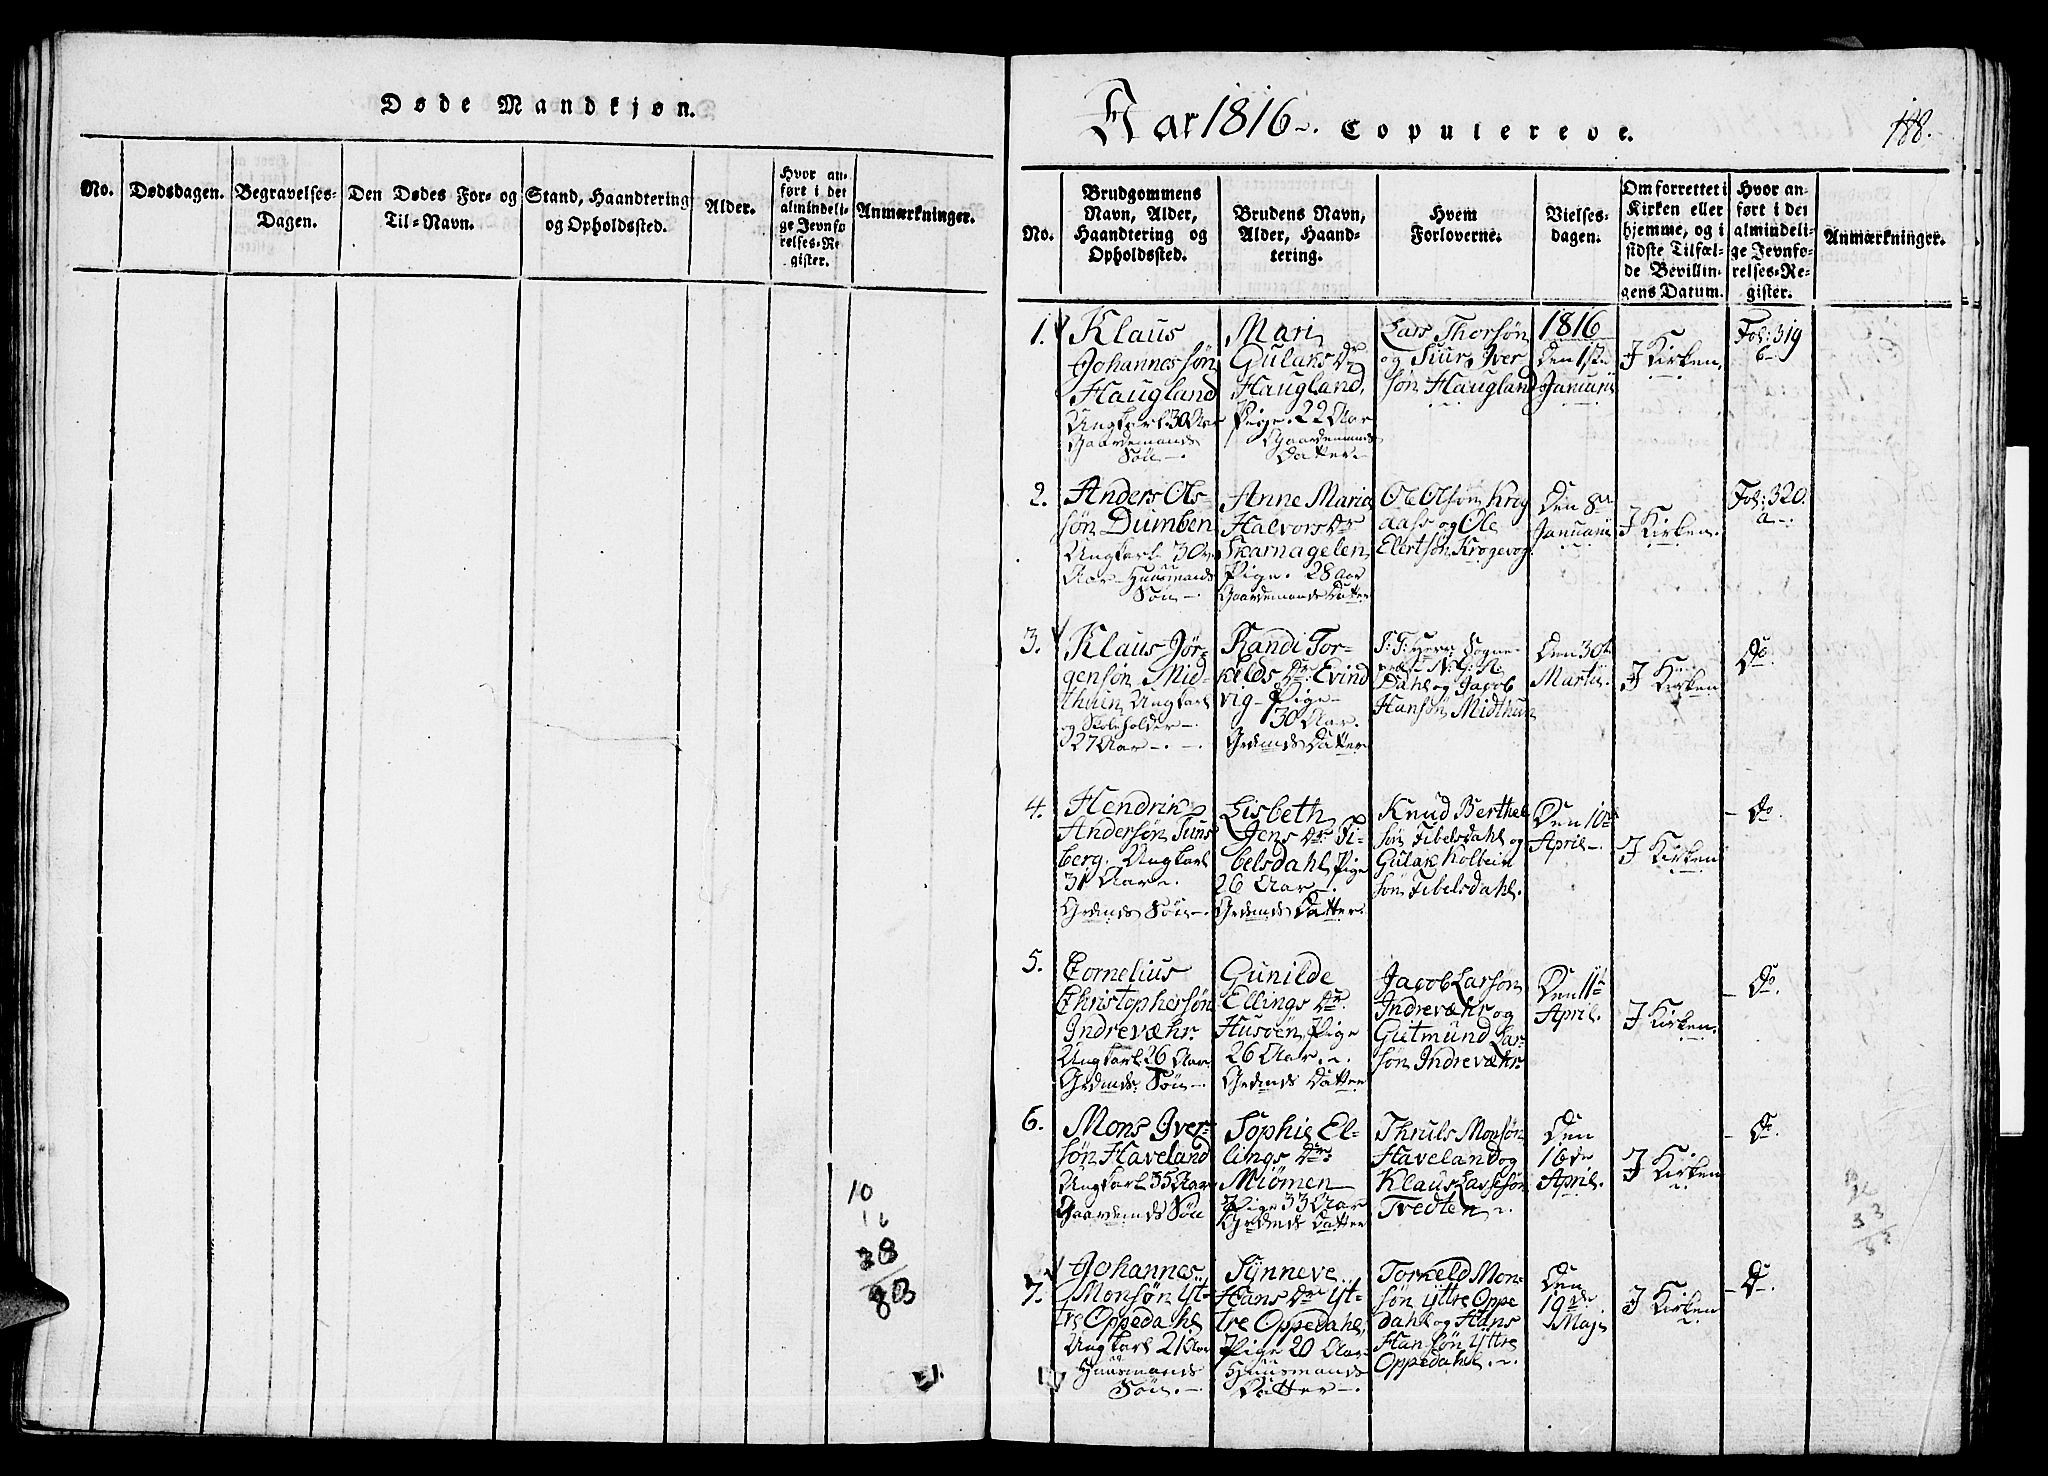 Døde Mandkjøn.
No.
Dødsdagen.
Begravelses-
Dagen.
Den Dødes For- og
Til-Navn.
Stand, Haandtering
og Opholdssted.
Alder.
Hvor an-
ført i det
almindeli-
ge Jevnfø
relses-Re
gister.
Anmærkninger.
10
16
38
83
Aar 1816 Copulerede.
188.
No.
Brudgommens
Navn, Alder,
Haandtering og
Opholdssted.
Brudens Navn,
Alder, Haand-
tering.
Hvem
Forloverne.
Vielses-
dagen.
Om forrettet i
Kirken eller
hjemme, og i
sidste Tilfæl-
de Bevillin-
gens Datum.
Hvor an-
ført i det
almindeli-
ge Jevnfø-
relses-Re-
gister.
Anmærkninger.
1.
Klaus
Johannessøn
Haugland
Ungkarl 30 Aar
Gaardemands
Søn
Mari
Gulaks Dr
Haugland,
Pige. 22 Aar
Gaardemands
Datter
Lars Thorsøn
og Siur Iver
søn Haugland
1816
Den 1ste
Januarii
I Kirken.
Fol: 319
b
2.
Anders Ols-
søn Dumben
Ungkarl 30
Aar Huusmands
Søn
Anne Maria
Halvors Dr
Skarnagelen
Pige. 28 Aar
Gaardemands Datter
Ole Olsøn Krog
aass og Ole
Elertsøn Krogevog
Den 8de
Januarii
I Kirken.
Fol: 320.
a
3.
Klaus Jør-
gensøn Mid-
thuen Ungkarl
og Skoleholder
27 Aar
Randi Tor-
kelds Dr: Evind
vig Pige
30 Aar.
Grdmds Datter
S: T: Herr Sogne-
præst N: G: N:
Dahl og Jacob
Hansøn Midthun
Den 30te
Martii.
I Kirken
Do.
4.
Hendrik
Andersøn Tuns
berg. Ungkarl
31 Aar
Grdmds Søn
Lisbeth
Jens Dr: Ti-
belsdahl Pige
26 Aar
Grdmds Datter.
Knud Berthel
søn Tibelsdahl og
Gulak Kolbein
søn Tibelsdahl.
Den 10de
April
I Kirken
Do.
5.
Cornelius
Christophersøn
Indrevæhr.
Ungkarl 26 Aar
Grdmds: Søn
Gunilde
Ellings Dr:
Husøen Pige
26 Aar.
Grdmds Datter
Jacob Larsøn
Indrevæhr og
Gutmund Lar-
søn Indrevæhr.
Den 11te
April.
I Kirken.
Do.
6.
Mons Iver-
søn Haveland
Ungkarl 35 Aar
Gaardemds Søn
Sophie El-
lings Dr:
Miømen
Pige 33 Aar
Grdmds Datter
Thruls Monsøn
Haveland og
Klaus Lassesøn
Tvedten
Den
16de
April.
I Kirken
Do.
7.
Johannes
Monsøn Yt-
tre Oppedahl
Ungkarl 21 Aar
Huusmands
Søn.
Synneve
Hans Dr Yt-
tre Oppedahl,
Pige 20 Aar
Huusmands
Datter
Torkeld Mon-
søn Yttre Oppe
dahl og Hans
Hansøn Yttre
Oppedahl.
Den
19de
Maj
I Kirken
Do.